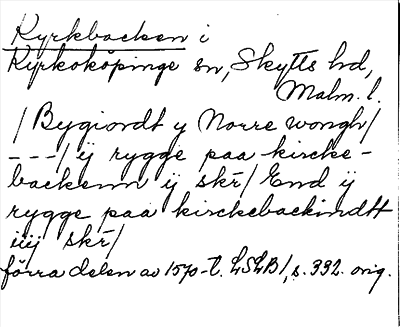 Kyrkbacken i
Kyrkoköpinge sn, Skytts hd,
Malm. l.
/ Bygiordt y Norre wongh /
- - - / ij rygge paa kircke-
backenn ij skr̄ / End ij
rygge paa kirckebackindtt
iiij skr̄ /
förra delen av 1570-t. LSLB 1, s. 332. orig.